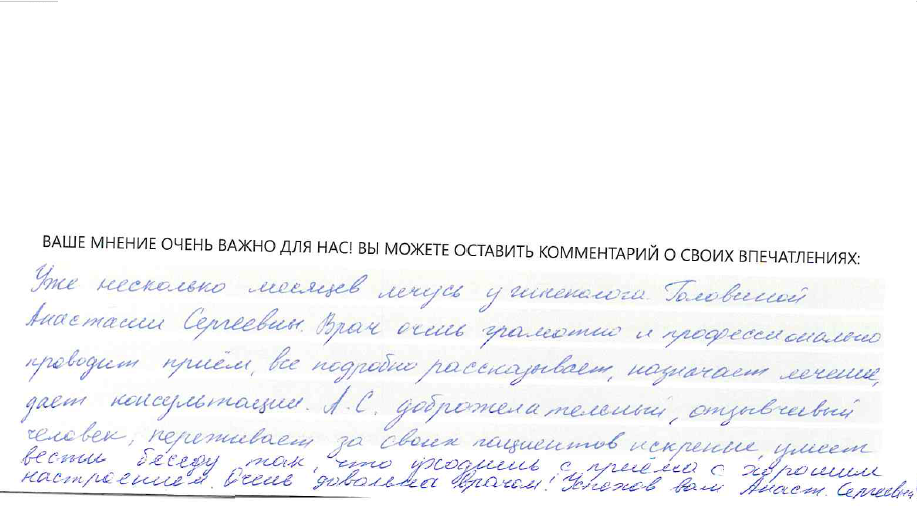 ВАШЕ МНЕНИЕ ОЧЕНЬ ВАЖНО ДЛЯ НАС! ВЫ МОЖЕТЕ ОСТАВИТЬ КОММЕНТАРИЙ О СВОИХ ВПЕЧАТЛЕНИЯХ:
Уже несколько месяцев лечусь у гинеколога Головиной
Анастасии Сергеевны. Врач очень грамотно и профессионально
проводит приём, все подробно рассказывает, назначает лечение,
дает консультации. А.С. доброжелательный, отзывчивый
человек, переживает за своих пациентов искренне, умеет
вести беседу так, что уходишь с приёма с хорошим
настроением. Очень довольна врачом! Успехов вам Анаст. Сергеевна